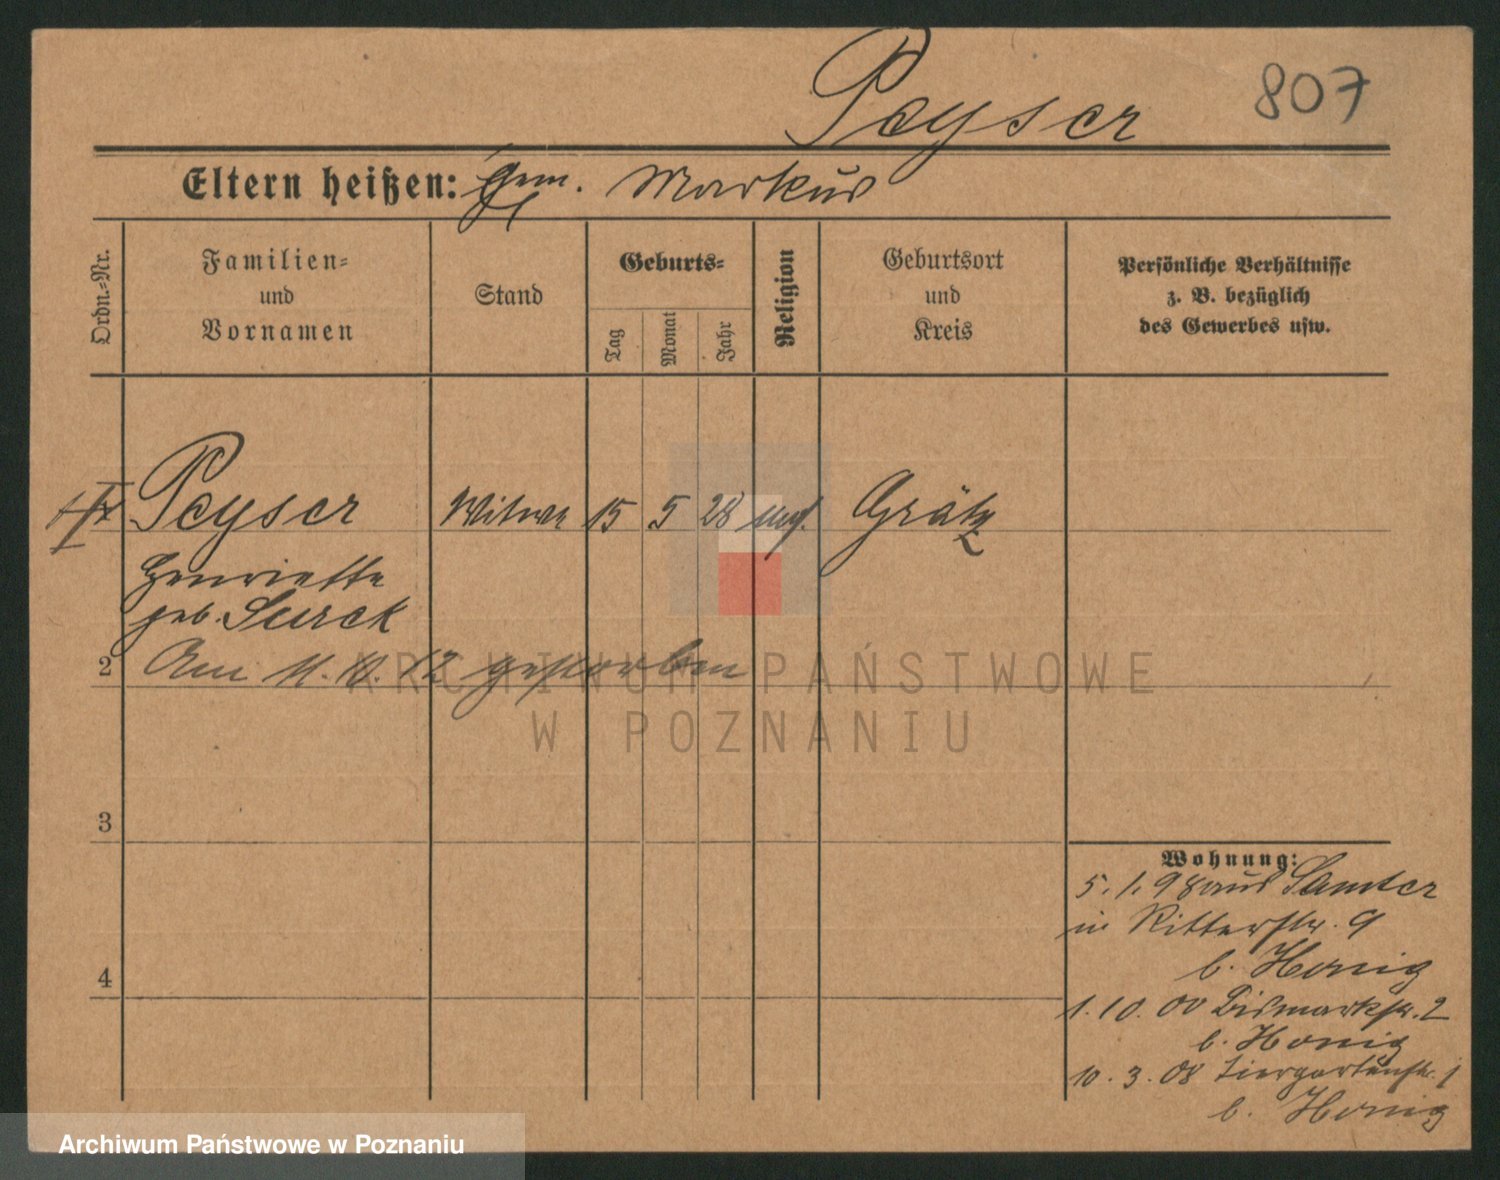 Peyser 807
Eltern heißen: Gem. Markus
Ordn.-Nr.
Familien-
und
Vornamen
Stand
Geburts-
Tag
Monat
Jahr
Religion
Geburtsort
und
Kreis
Persönliche Verhältnisse
z. B. bezüglich
des Gewerbes usw.
Peyser Witwe 15 5 28 Grätz
Henriette
geb. Turck
2 Am 11. 12 gestorben
3
4
Wohnung:
5. 1. 98 aus Samter
in Ritterstr. 9
b. Honig
1. 10. 00 Bismarkstr. 2
b. Honig
10. 3. 08 Tiergartenstr. 1
b. Honig
ARCHIWUM PAŃSTWOWE
W POZNANIU
Archiwum Państwowe w Poznaniu